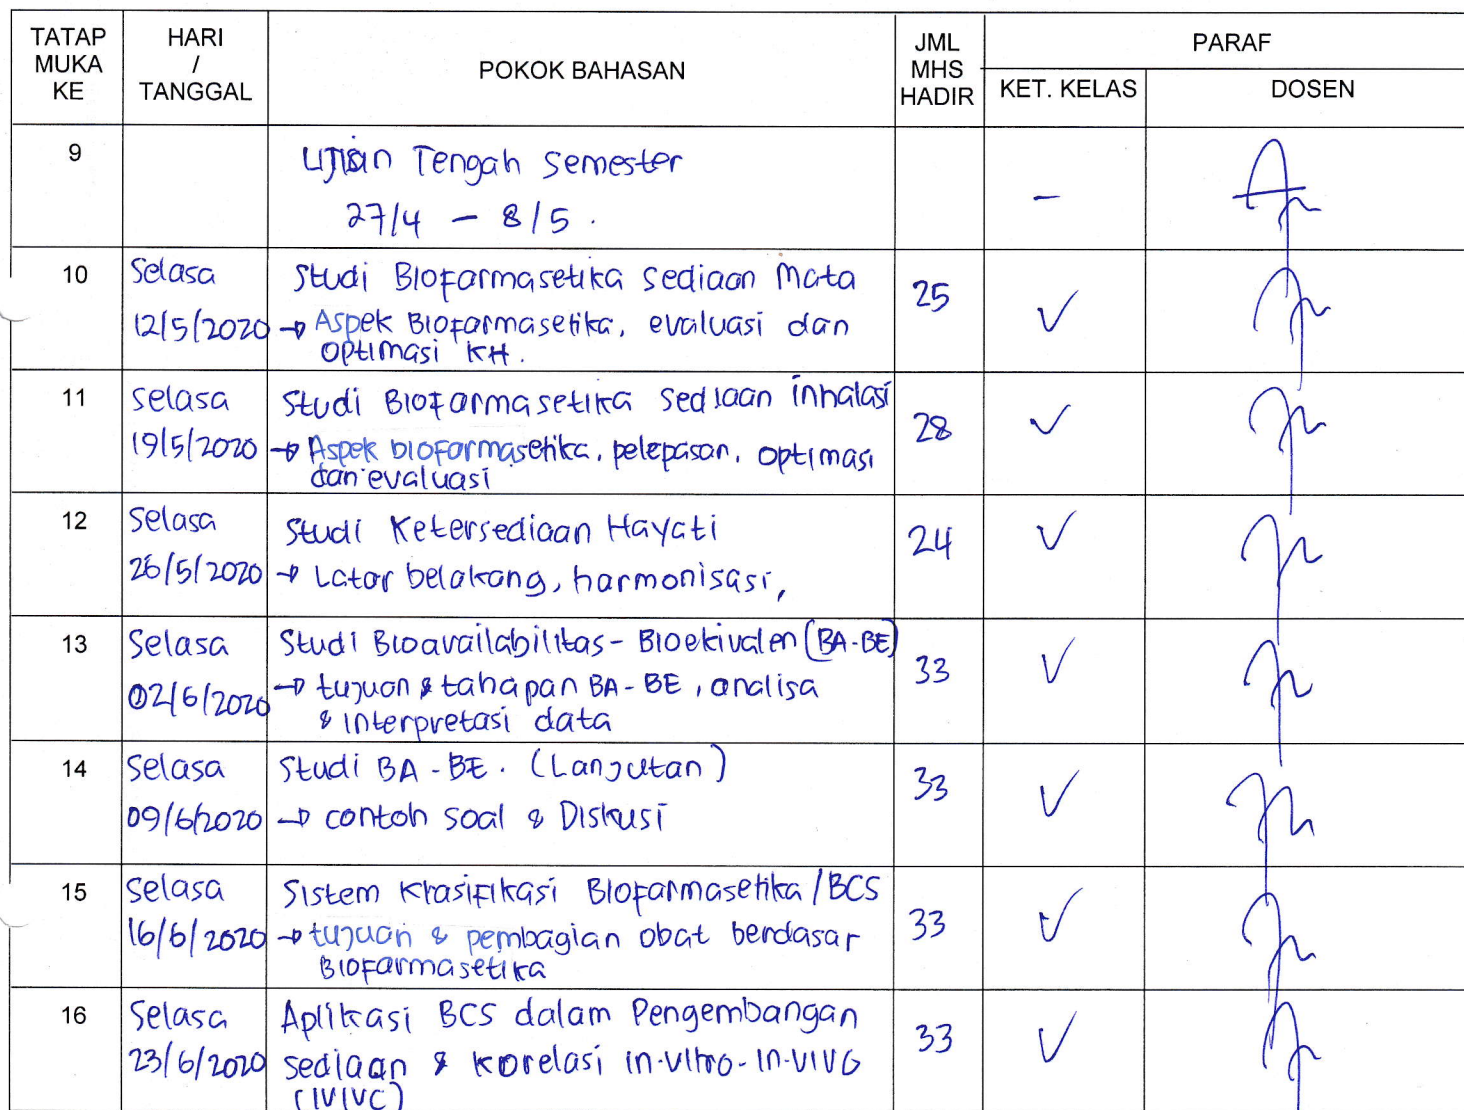 TATAP MUKA KE
HARI / TANGGAL
POKOK BAHASAN
JML MHS HADIR
PARAF
KET. KELAS
DOSEN
9
Ujian Tengah Semester
27/4 - 8/5.
-
10
Selasa
12/5/2020
Studi Biofarmasetika sediaan Mata
→ Aspek Biofarmasetika, evaluasi dan
optimasi KH.
25
✓
11
Selasa
19/5/2020
Studi Biofarmasetika Sediaan inhalasi
→ Aspek biofarmasetika, pelepasan, optimasi
dan evaluasi
28
✓
12
Selasa
26/5/2020
Studi Ketersediaan Hayati
→ Latar belakang, harmonisasi,
24
✓
13
Selasa
02/6/2020
Studi Bioavailabilitas - Bioekivalen (BA-BE)
→ tujuan & tahapan BA-BE, analisa
& interpretasi data
33
✓
14
Selasa
09/6/2020
Studi BA-BE. (Lanjutan)
→ contoh soal & Diskusi
33
✓
15
Selasa
16/6/2020
Sistem Klasifikasi Biofarmasetika/BCS
→ tujuan & pembagian obat berdasar
Biofarmasetika
33
✓
16
Selasa
23/6/2020
Aplikasi BCS dalam Pengembangan
sediaan & korelasi in-vitro-in-vivo
(IVIVC)
33
✓